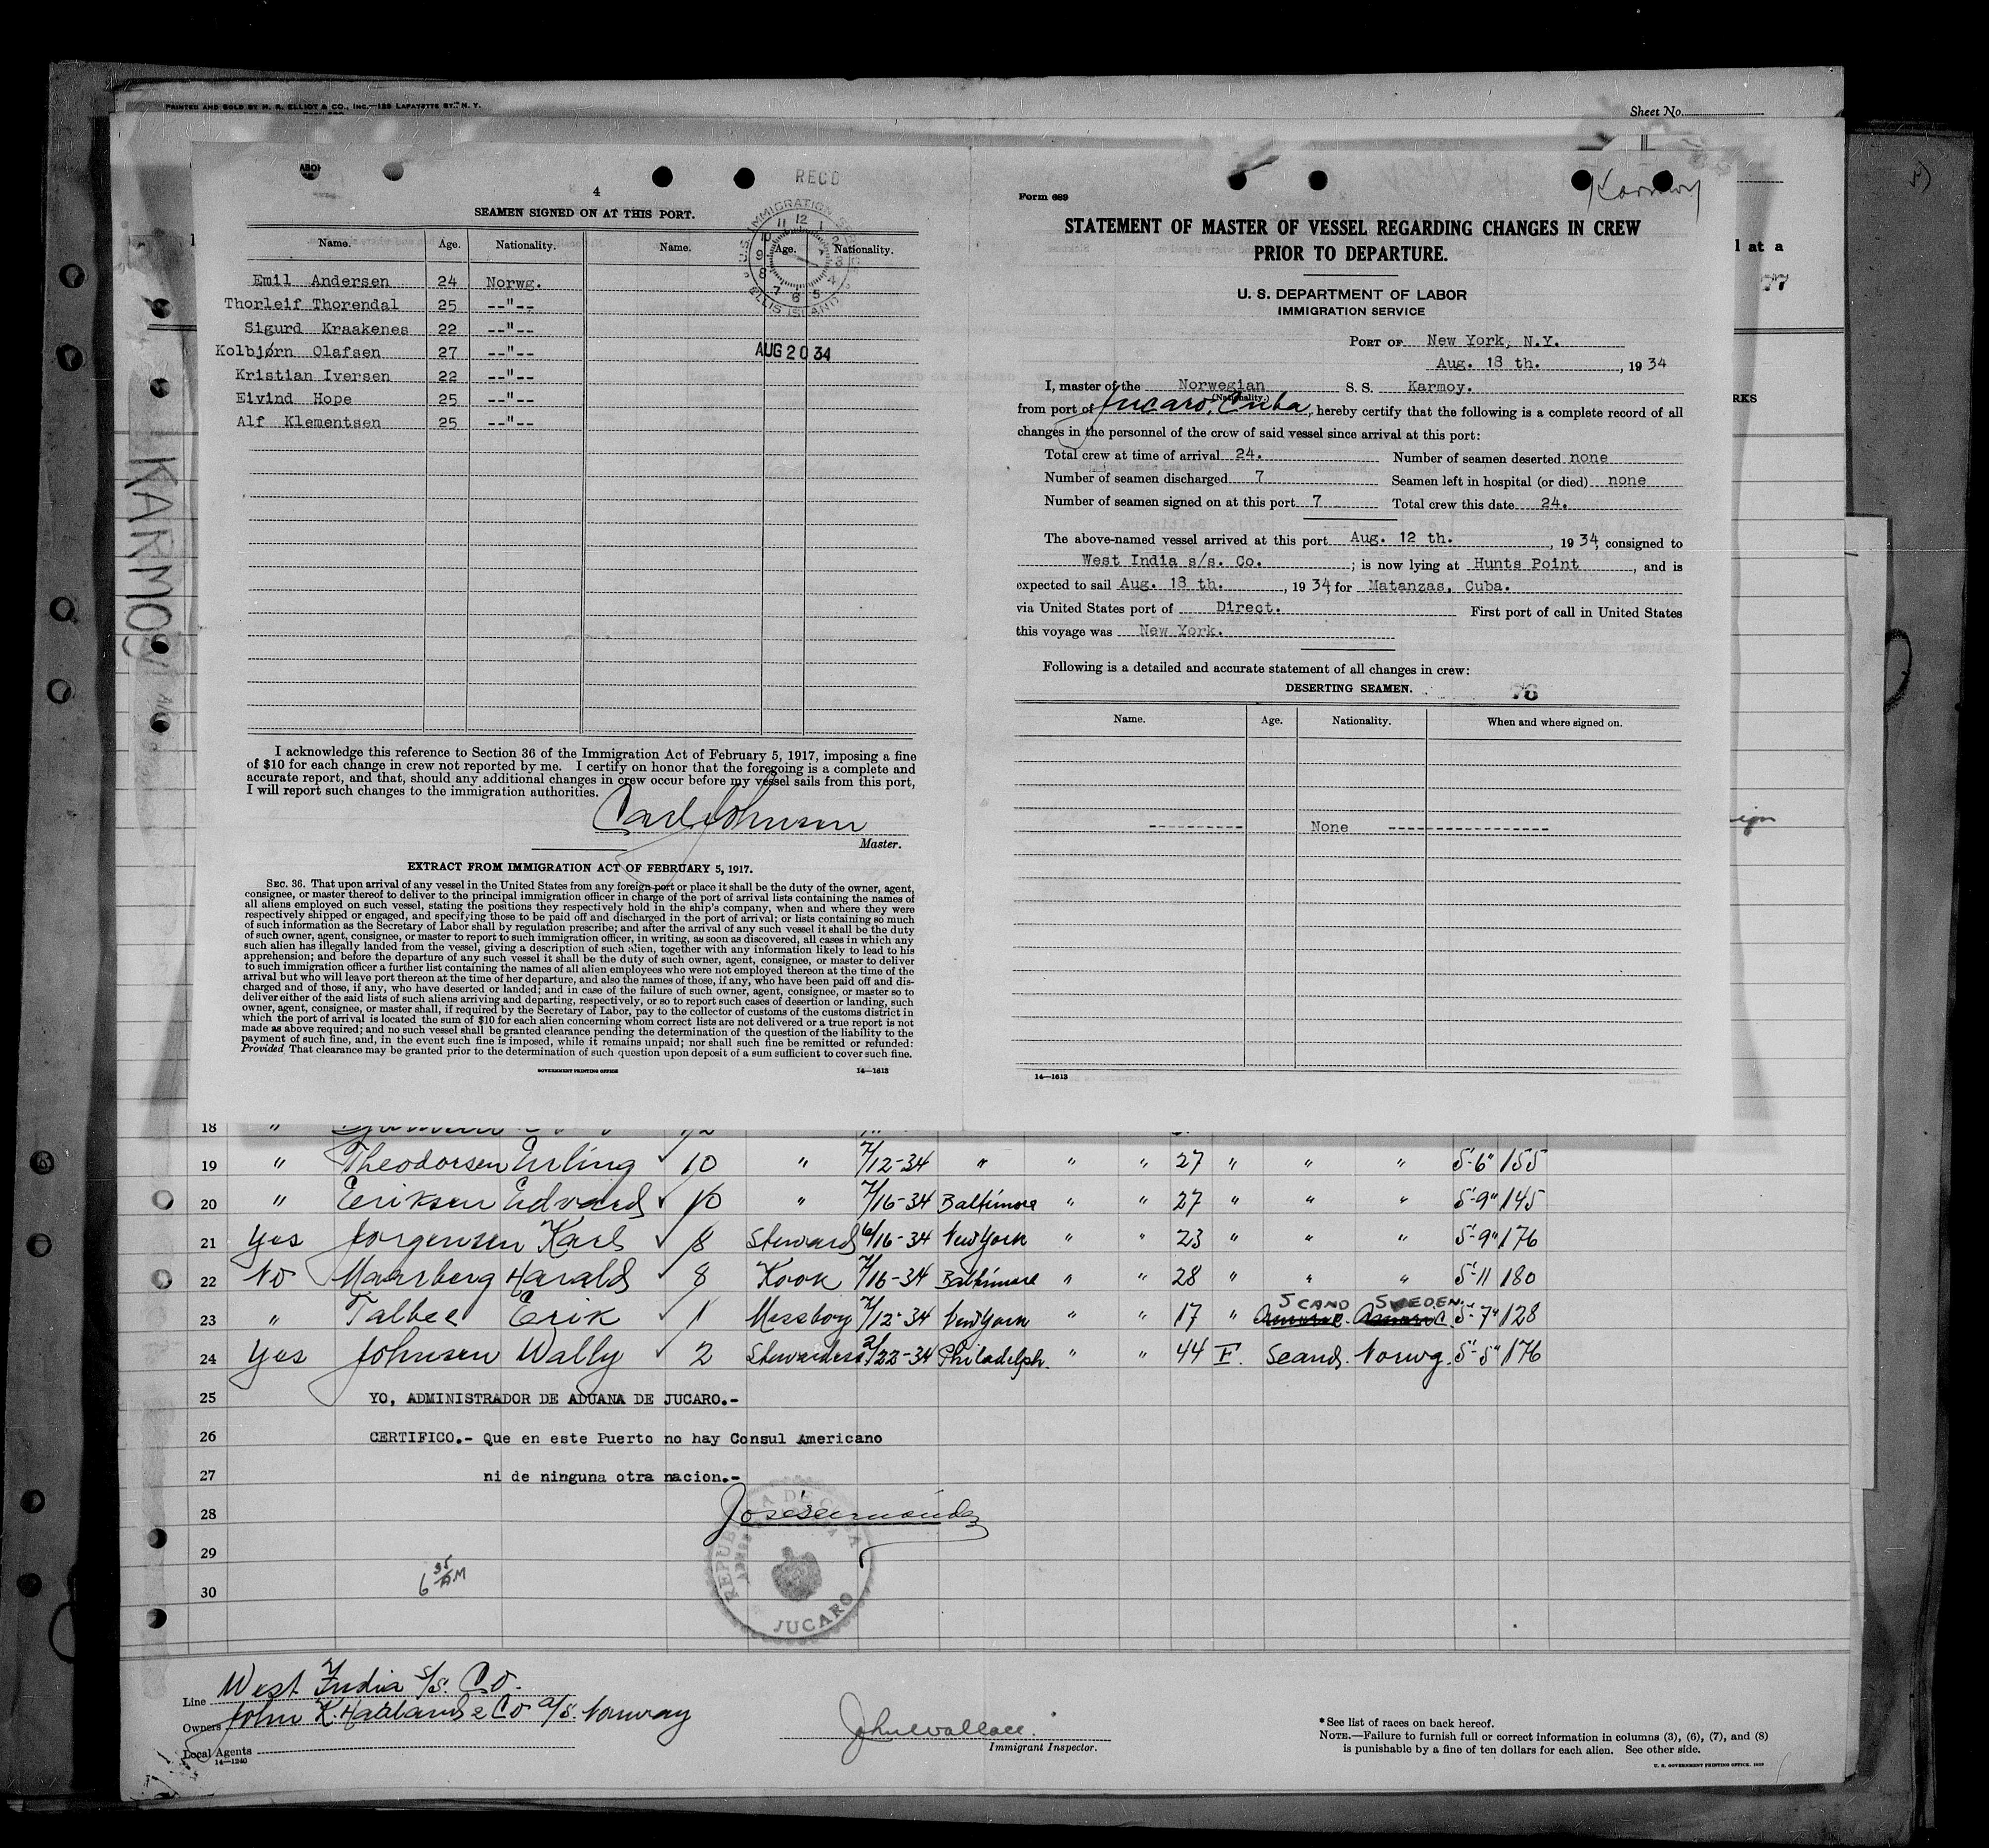 PRINTED AND SOLD BY H. R. ELLIOT & CO., INC.—129 LAFAYETTE ST., N. Y.
Sheet No.
4
RECD
SEAMEN SIGNED ON AT THIS PORT.
Name. Age. Nationality. Name. Age. Nationality.
Emil Andersen 24 Norwg.
Thorleif Thorendal 25 --"--
Sigurd Kraakenes 22 --"--
Kolbjørn Olafsen 27 --"--
Kristian Iversen 22 --"--
Eivind Hope 25 --"--
Alf Klementsen 25 --"--
ELLIS ISLAND
AUG 20 34
I acknowledge this reference to Section 36 of the Immigration Act of February 5, 1917, imposing a fine
of $10 for each change in crew not reported by me. I certify on honor that the foregoing is a complete and
accurate report, and that, should any additional changes in crew occur before my vessel sails from this port,
I will report such changes to the immigration authorities.
Carl Johnsen
Master.
EXTRACT FROM IMMIGRATION ACT OF FEBRUARY 5, 1917.
SEC. 36. That upon arrival of any vessel in the United States from any foreign port or place it shall be the duty of the owner, agent,
consignee, or master thereof to deliver to the principal immigration officer in charge of the port of arrival lists containing the names of
all aliens employed on such vessel, stating the positions they respectively hold in the ship's company, when and where they were
respectively shipped or engaged, and specifying those to be paid off and discharged in the port of arrival; or lists containing so much
of such information as the Secretary of Labor shall by regulation prescribe; and after the arrival of any such vessel it shall be the duty
of such owner, agent, consignee, or master to report to such immigration officer, in writing, as soon as discovered, all cases in which any
such alien has illegally landed from the vessel, giving a description of such alien, together with any information likely to lead to his
apprehension; and before the departure of any such vessel it shall be the duty of such owner, agent, consignee, or master to deliver
to such immigration officer a further list containing the names of all alien employees who were not employed thereon at the time of the
arrival but who will leave port thereon at the time of her departure, and also the names of those, if any, who have been paid off and dis-
charged and of those, if any, who have deserted or landed; and in case of the failure of such owner, agent, consignee, or master so to
deliver either of the said lists of such aliens arriving and departing, respectively, or so to report such cases of desertion or landing, such
owner, agent, consignee, or master shall, if required by the Secretary of Labor, pay to the collector of customs of the customs district in
which the port of arrival is located the sum of $10 for each alien concerning whom correct lists are not delivered or a true report is not
made as above required; and no such vessel shall be granted clearance pending the determination of the question of the liability to the
payment of such fine, and, in the event such fine is imposed, while it remains unpaid; nor shall such fine be remitted or refunded:
Provided That clearance may be granted prior to the determination of such question upon deposit of a sum sufficient to cover such fine.
GOVERNMENT PRINTING OFFICE 14—1613
KARMOY
Karmoy
Form 689
STATEMENT OF MASTER OF VESSEL REGARDING CHANGES IN CREW
PRIOR TO DEPARTURE.
U. S. DEPARTMENT OF LABOR
IMMIGRATION SERVICE
PORT OF New York, N.Y.
Aug. 18 th., 1934
I, master of the Norwegian S. S. Karmoy.
(Nationality.)
from port of Jucaro, Cuba, hereby certify that the following is a complete record of all
changes in the personnel of the crew of said vessel since arrival at this port:
Total crew at time of arrival 24. Number of seamen deserted none
Number of seamen discharged 7 Seamen left in hospital (or died) none
Number of seamen signed on at this port 7 Total crew this date 24.
The above-named vessel arrived at this port Aug. 12 th., 1934, consigned to
West India s/s. Co.; is now lying at Hunts Point, and is
expected to sail Aug. 18 th., 1934, for Matanzas, Cuba.
via United States port of Direct. First port of call in United States
this voyage was New York.
Following is a detailed and accurate statement of all changes in crew:
DESERTING SEAMEN. 76
Name. Age. Nationality. When and where signed on.
---------- None -----------------
14—1613
l at a
77
RKS
18 "
19 " Theodorsen Erling ✓ 10 " 7/12-34 " " " 27 " " " 5'-6" 155
20 " Eriksen Edvard ✓ 10 " 7/16-34 Baltimore " " 27 " " " 5'-9" 145
21 Yes Jorgensen Karl ✓ 8 Steward 6/16-34 New York " " 23 " " 5'-9" 176
22 No Maarberg Harald ✓ 8 Kook 7/16-34 Baltimore " " 28 " " " 5'-11 180
SCAND SWEDEN.
23 " Talbee Erik ✓ 1 Messboy 7/12-34 New York " " 17 " 5'-7" 128
24 Yes Johnsen Wally ✓ 2 Stewardess 2/22-34 Philadelph. " " 44 F. Scand. Norwg. 5'-5" 176
25 YO, ADMINISTRADOR DE ADUANA DE JUCARO.-
26 CERTIFICO.- Que en este Puerto no hay Consul Americano
27 ni de ninguna otra nacion.-
28
29
30
6 35 AM
REPUBLICA DE CUBA
JUCARO
Line West India S/S. Co.
Owners John K. Haaland & Co a/s. Norway
Local Agents
14—1240
John Wallace
Immigrant Inspector.
*See list of races on back hereof.
NOTE.—Failure to furnish full or correct information in columns (3), (6), (7), and (8)
is punishable by a fine of ten dollars for each alien. See other side.